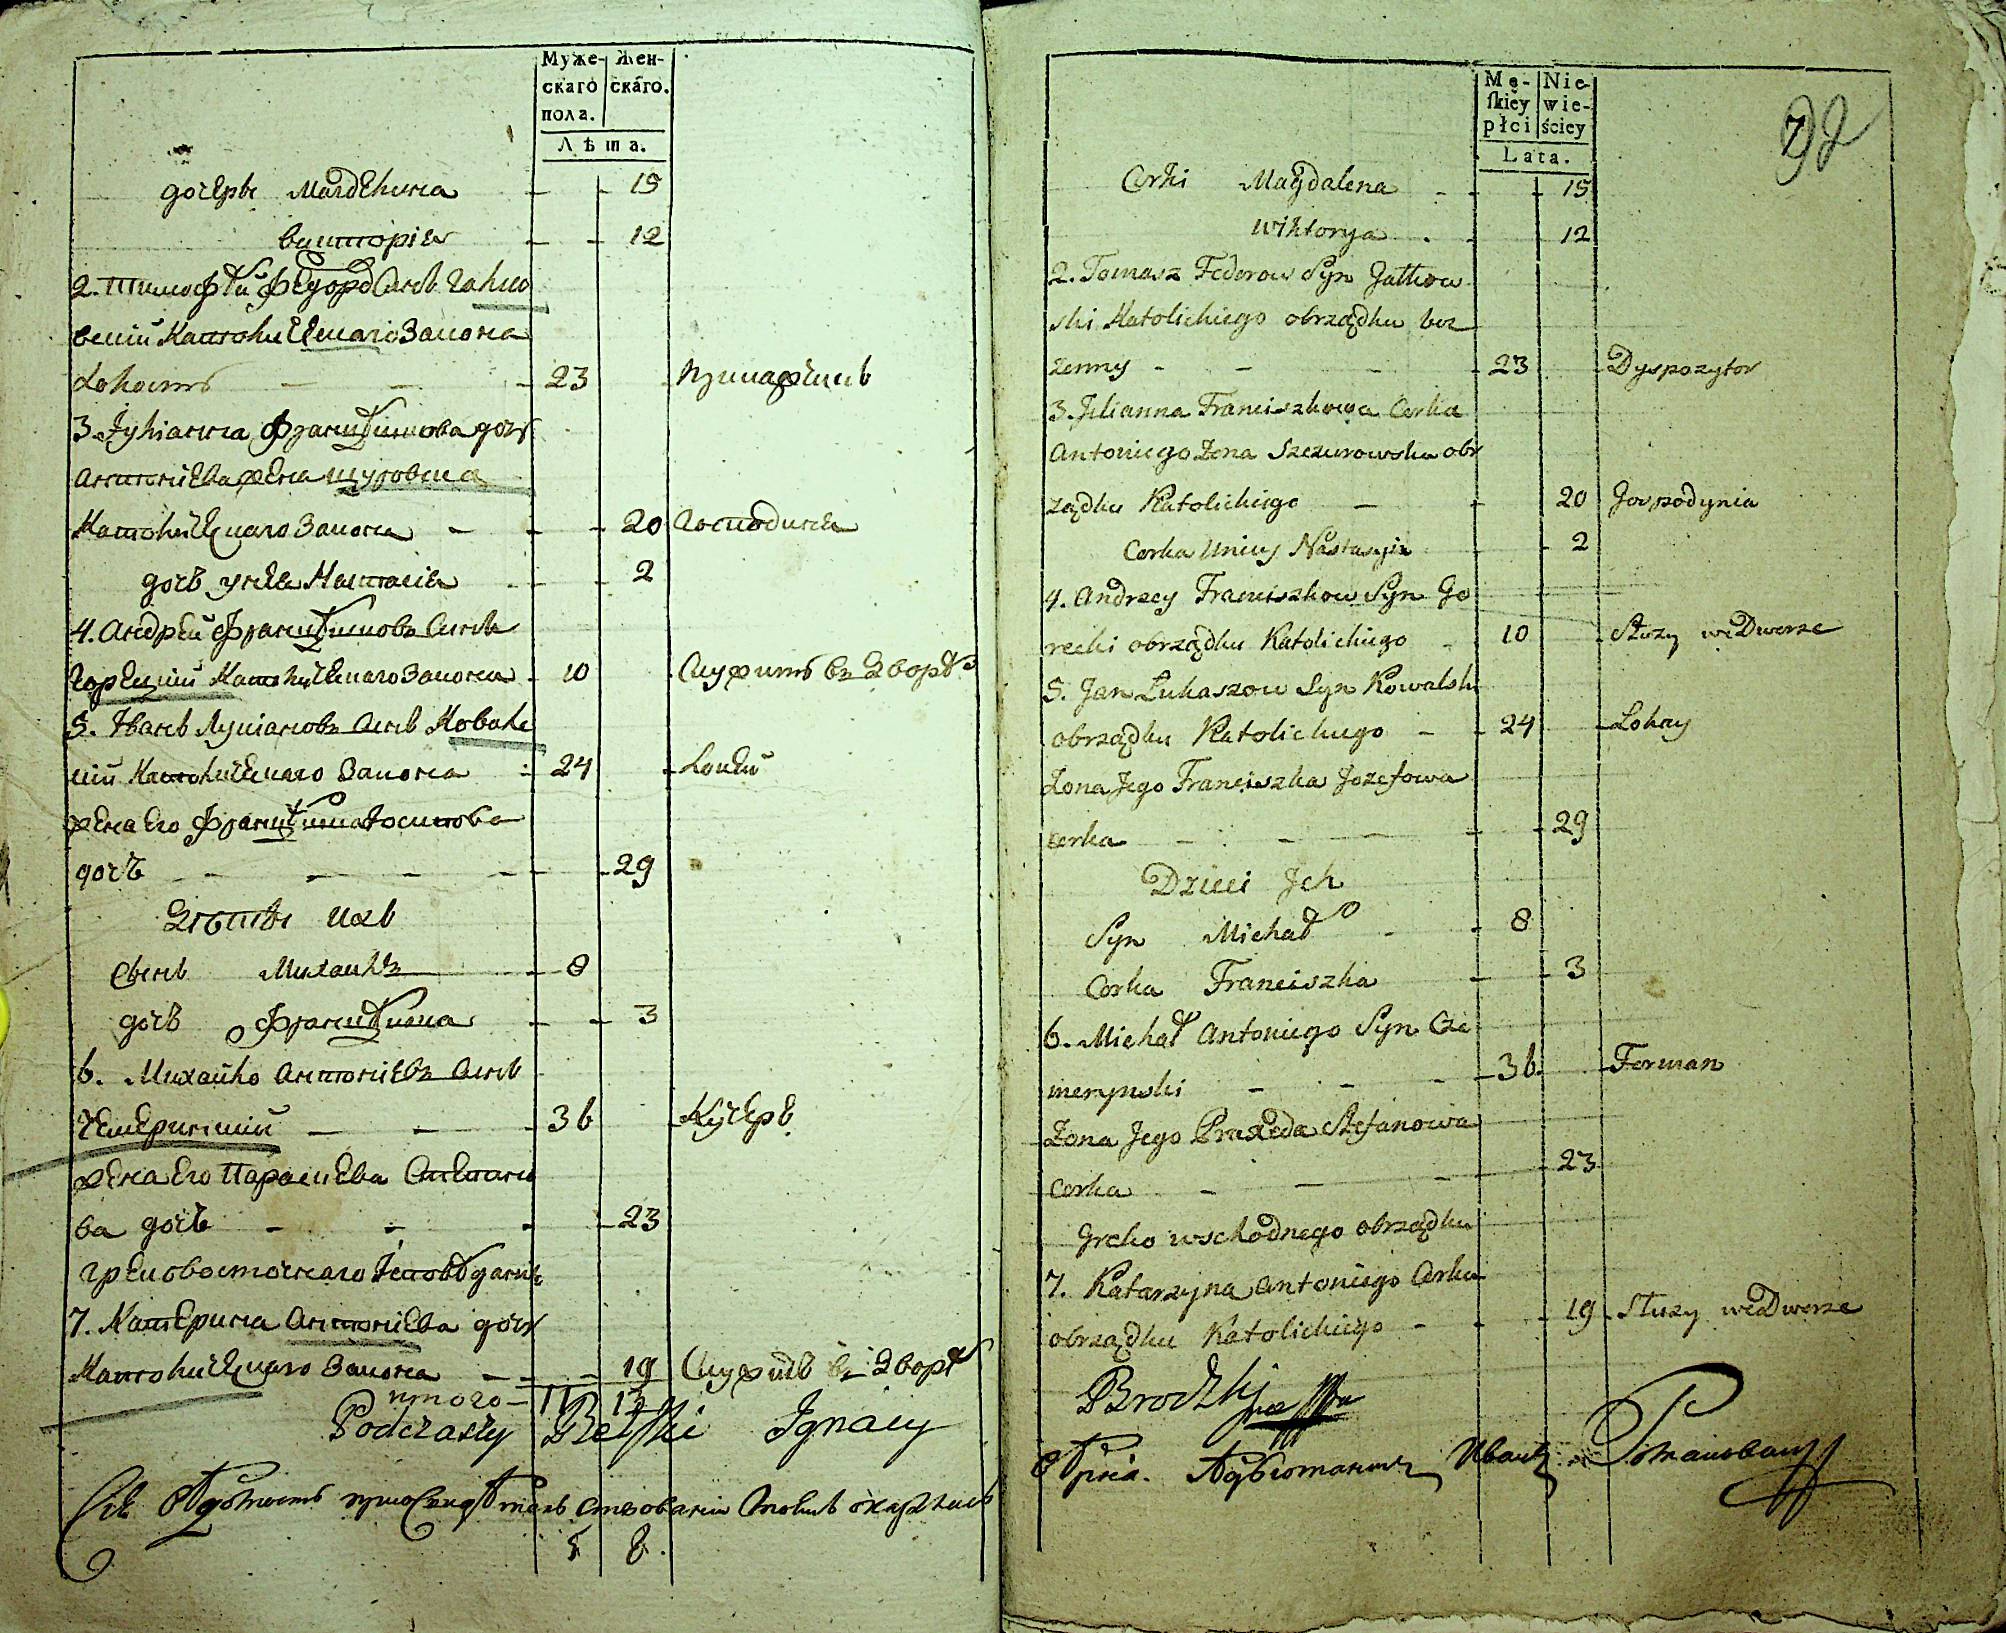 Муже- Жен-
скаго скаго.
пола.
Лѣта.
дочерѣ Магдалина - - 15
Викторія - - 12
2. Тимофѣй Федоровъ Сынъ Галко
вскій Католическаго Закона
Холостъ - - - 23 Прикащикъ
3. Іуліанна Францѣшкова дочь
Антоніева жена Щуровска
Католическаго Закона - - - 20 Господиня
дочъ унея Настасія - - 2
4. Андрей Францѣшковъ Сынъ
Горецкій Католическаго Закона - 10 Служитъ въ Дворѣ
5. Иванъ Лукіановъ Сынъ Коваль
скій Католическаго Закона - 24 Локей
жена Его Францѣшка Іосипова
дочъ - - - - 29
Дѣти ихъ
Сынъ Михаилъ - 8
дочъ Францѣшка - - 3
6. Михайло Антоніевъ Сынъ
Чемеринскій - - - 36 Кучеръ
жена Его Параскева Степано
ва дочъ - - - 23
грековосточнаго Исповѣданія
7. Катерина Антоніева дочь
Католическаго Закона - - - 19 Служитъ въ Дворѣ
итого - 11 13
Podczaszy Ignacy
5 8.
Mę- Nie-
ſkiey wie-
płci ściey
Lata.
92
Corki Magdalena - - - 15
Wiktorya - - 12
2. Tomasz Fedorow Syn Gałkow
ski Katolickiego obrządku bez
żenny - - - - 23 Dyspozytor
3. Julianna Franciszkowa Corka
Antoniego Żona Szczurowska obr
ządku Katolickiego - - 20 Gospodynia
Corka Uniey Nastasyia - 2
4. Andrzey Franciszkow Syn Go
recki obrządku Katolickiego - 10 Służy we Dworze
5. Jan Łukaszow Syn Kowalski
obrządku Katolickiego - - 24 Lokay
Żona Jego Franciszka Jozefowa
corka - - - - - 29
Dzieci Jch
Syn Michał - - 8
Corka Franciszka - - 3
6. Michał Antoniego Syn Cze
merynski - - - - 36 Forman
Żona Jego Praxeda Stefanowa
corka - - - - 23
Greko wschodnego obrządku
7. Katarzyna Antoniego Corka
obrządku Katolickiego - - 19 Służy we Dworze
Иванъ Романовъ